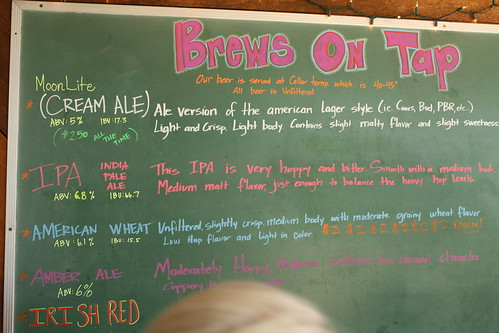 Brews On Tap
Our beer is served at Cellar temp which is 40-45°
All beer is Unfiltered
MoonLite
(CREAM ALE)
ABV: 5% IBU: 17.3
($2.50 ALL THE TIME)
Ale version of the american lager style (ie. Coors, Bud, PBR, etc.)
Light and Crisp. Light body. Contains slight malty flavor and slight sweetness.
IPA INDIA PALE ALE
ABV: 6.8% IBU: 66.7
This IPA is very hoppy and bitter. Smooth with a medium body.
Medium malt flavor, just enough to balance the heavy hop levels.
AMERICAN WHEAT
ABV: 6.1% IBU: 15.5
Unfiltered, slightly crisp, medium body with moderate grainy wheat flavor
Low Hop flavor and Light in color.
AMBER ALE
ABV: 6%
Moderately Hoppy caramel character
Coppery
IRISH RED